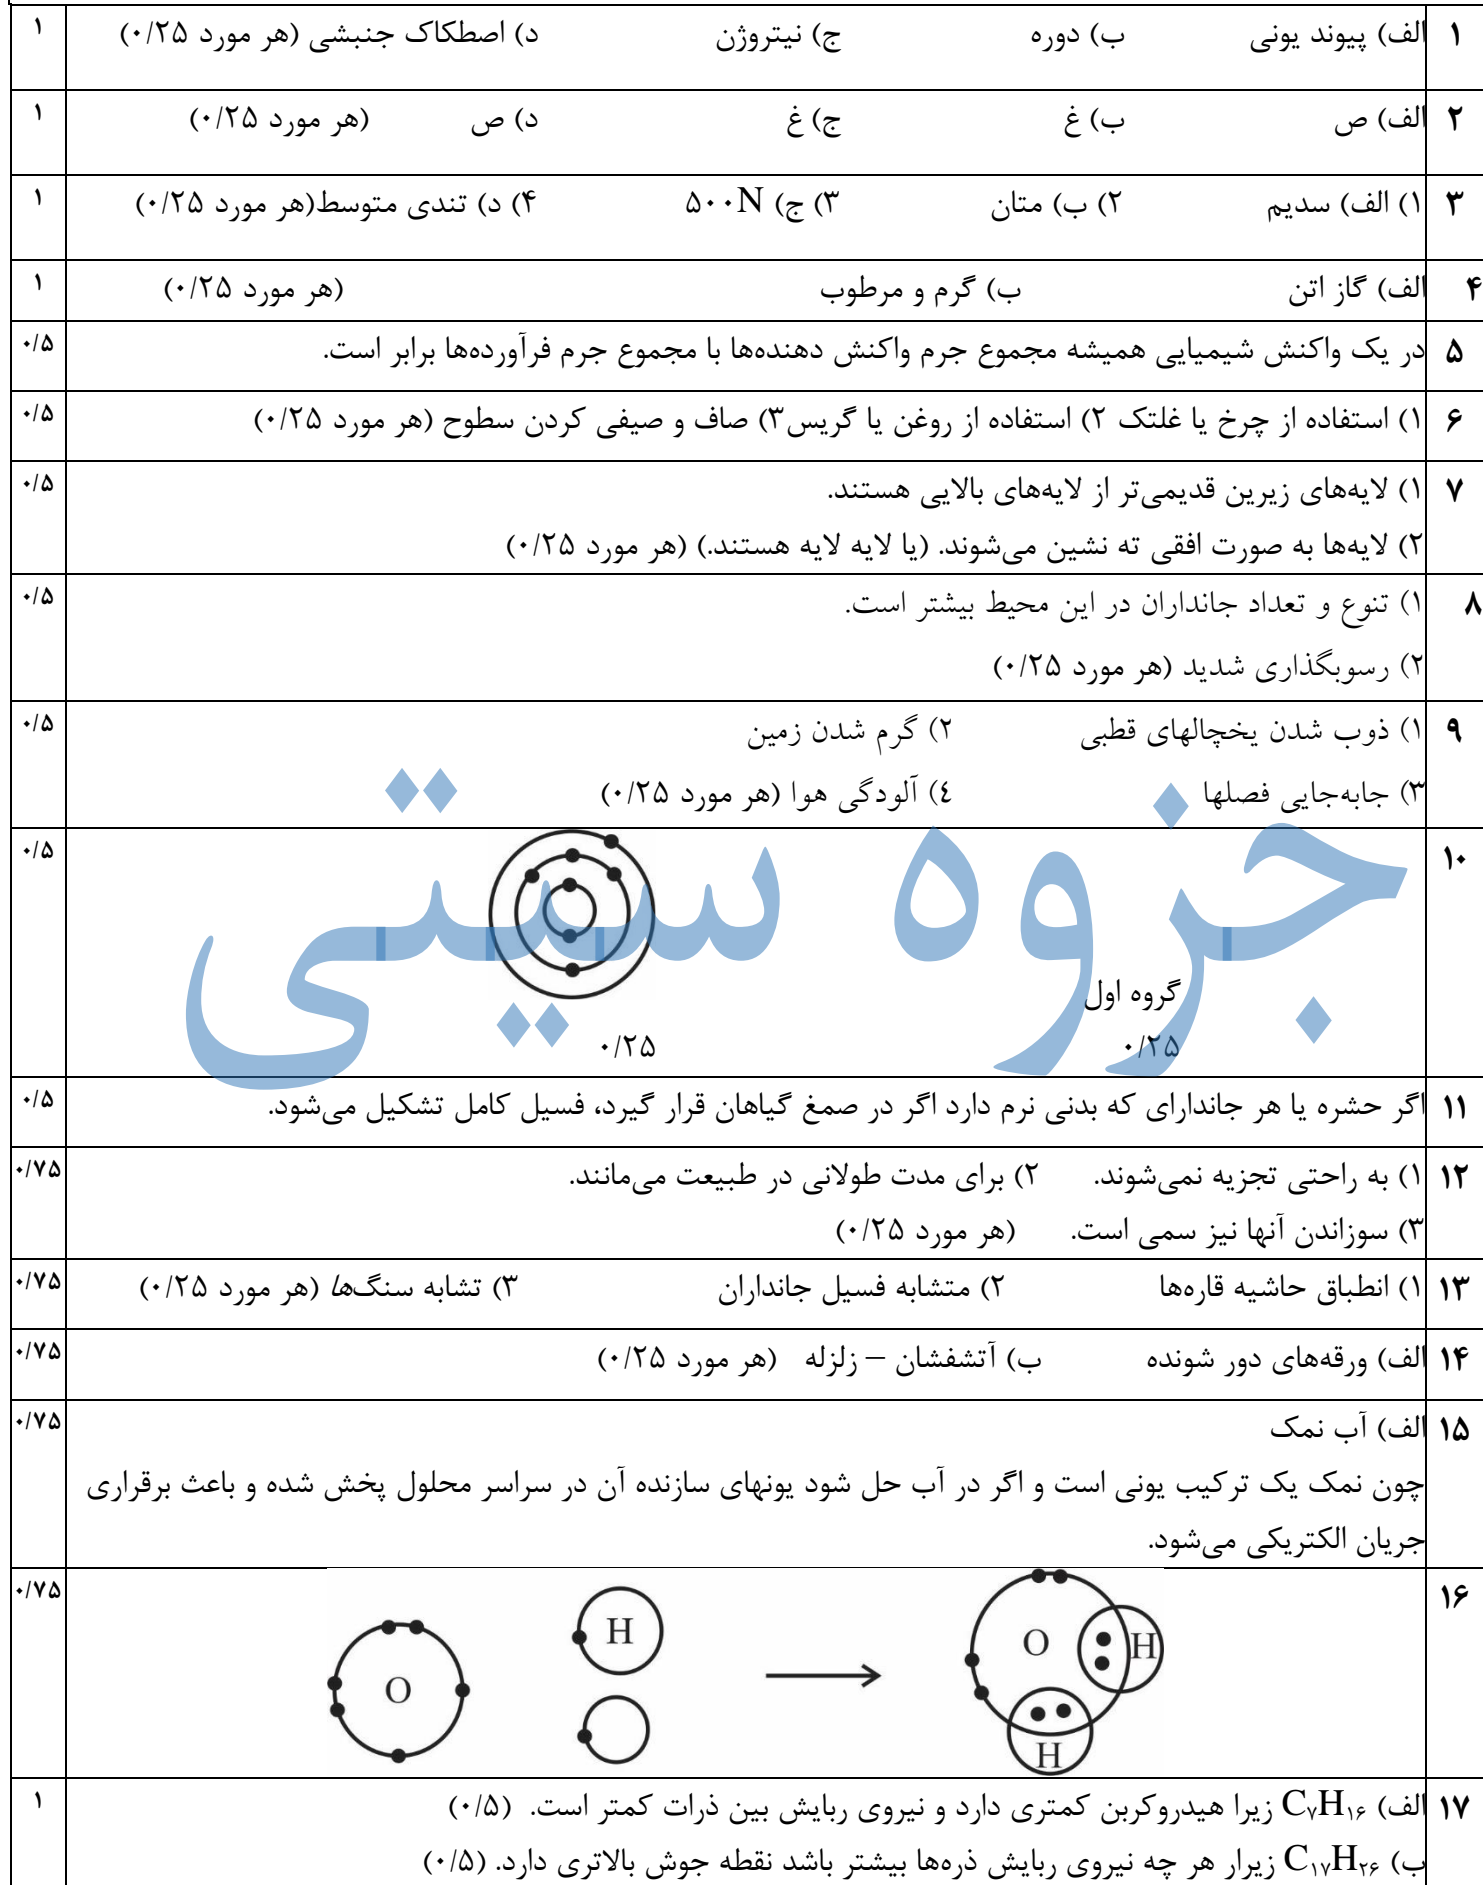 ۱ الف) پیوند یونی ب) دوره ج) نیتروژن د) اصطکاک جنبشی (هر مورد ۰/۲۵) ۱
۲ الف) ص ب) غ ج) غ د) ص (هر مورد ۰/۲۵) ۱
۳ ۱) الف) سدیم ۲) ب) متان ۳) ج) ۵۰۰N ۴) د) تندی متوسط(هر مورد ۰/۲۵) ۱
۴ الف) گاز اتن ب) گرم و مرطوب (هر مورد ۰/۲۵) ۱
۵ در یک واکنش شیمیایی همیشه مجموع جرم واکنش دهنده‌ها با مجموع جرم فرآورده‌ها برابر است. ۰/۵
۶ ۱) استفاده از چرخ یا غلتک ۲) استفاده از روغن یا گریس۳) صاف و صیفی کردن سطوح (هر مورد ۰/۲۵) ۰/۵
۷ ۱) لایه‌های زیرین قدیمی‌تر از لایه‌های بالایی هستند. ۰/۵
۲) لایه‌ها به صورت افقی ته نشین می‌شوند. (یا لایه لایه هستند.) (هر مورد ۰/۲۵)
۸ ۱) تنوع و تعداد جانداران در این محیط بیشتر است. ۰/۵
۲) رسوبگذاری شدید (هر مورد ۰/۲۵)
۹ ۱) ذوب شدن یخچالهای قطبی ۲) گرم شدن زمین ۰/۵
۳) جابه‌جایی فصلها ٤) آلودگی هوا (هر مورد ۰/۲۵)
جزوه سیتی
۱۰ ۰/۵
گروه اول
۰/۲۵ ۰/۲۵
۱۱ اگر حشره یا هر جاندارای که بدنی نرم دارد اگر در صمغ گیاهان قرار گیرد، فسیل کامل تشکیل می‌شود. ۰/۵
۱۲ ۱) به راحتی تجزیه نمی‌شوند. ۲) برای مدت طولانی در طبیعت می‌مانند. ۰/۷۵
۳) سوزاندن آنها نیز سمی است. (هر مورد ۰/۲۵)
۱۳ ۱) انطباق حاشیه قاره‌ها ۲) متشابه فسیل جانداران ۳) تشابه سنگ‌ها (هر مورد ۰/۲۵) ۰/۷۵
۱۴ الف) ورقه‌های دور شونده ب) آتشفشان – زلزله (هر مورد ۰/۲۵) ۰/۷۵
۱۵ الف) آب نمک ۰/۷۵
چون نمک یک ترکیب یونی است و اگر در آب حل شود یونهای سازنده آن در سراسر محلول پخش شده و باعث برقراری
جریان الکتریکی می‌شود.
۱۶ ۰/۷۵
H O H
O
H
۱۷ الف) C₇H₁₆ زیرا هیدروکربن کمتری دارد و نیروی ربایش بین ذرات کمتر است. (۰/۵) ۱
ب) C₁₇H₂₆ زیرار هر چه نیروی ربایش ذره‌ها بیشتر باشد نقطه جوش بالاتری دارد. (۰/۵)